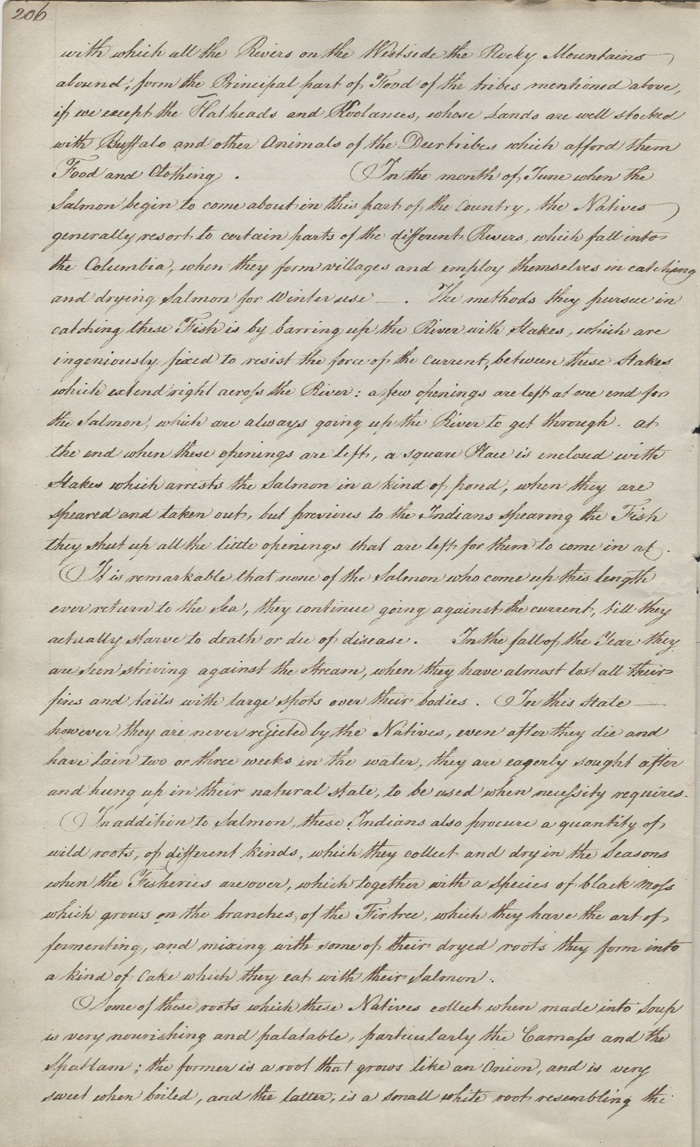 206
with which all the Rivers on the Westside the Rocky Mountains
abound, form the Principal part of Food of the tribes mentioned above,
if we except the Flatheads and Koolances, whose Lands are well stocked
with Buffalo and other Animals of the Deer tribes which afford them
Food and Clothing . In the month of June when the
Salmon begin to come about in this part of the Country, the Natives
generally resort to certain parts of the different Rivers, which fall into
the Columbia, when they form villages and employ themselves in catching
and drying Salmon for Winter use — . The methods they pursue in
catching these Fish is by barring up the River with Stakes, which are
ingeniously fixed to resist the force of the current, between these Stakes
which extend right across the River : a few openings are left at one end for
the Salmon, which are always going up the River to get through . at
the end when these openings are left, a square Place is enclosed with
Stakes which arrests the Salmon in a kind of pond, when they are
speared and taken out, but previous to the Indians spearing the Fish
they shut up all the little openings that are left for them to come in at .
It is remarkable that none of the Salmon who come up this length
ever return to the Sea, they continue going against the current, till they
actually starve to death or die of disease . In the fall of the Year they
are seen striving against the stream, when they have almost lost all their
fins and tails with large spots over their bodies . In this state —
however they are never rejected by the Natives, even after they die and
have lain two or three weeks in the water, they are eagerly sought after
and hung up in their natural state, to be used when necessity requires .
In addition to Salmon, these Indians also procure a quantity of
wild roots, of different kinds, which they collect and dry in the Seasons
when the Fisheries are over, which together with a species of black moss
which grows on the branches of the Fir tree, which they have the art of
fermenting, and mixing with some of their dryed roots they form into
a kind of Cake which they eat with their Salmon .
Some of these roots which these Natives collect when made into Soup
is very nourishing and palatable, particularly the Camass and the
Spatlam ; the former is a root that grows like an Onion, and is very
sweet when boiled, and the latter, is a small white root resembling the